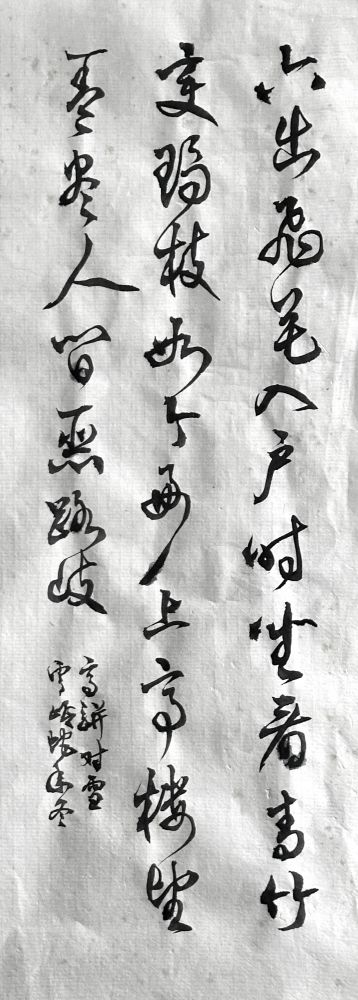 六出飛花入户时坐看青竹
变琼枝如今好上高楼望
盖尽人间恶路岐
高骈对雪
雪蛇年冬